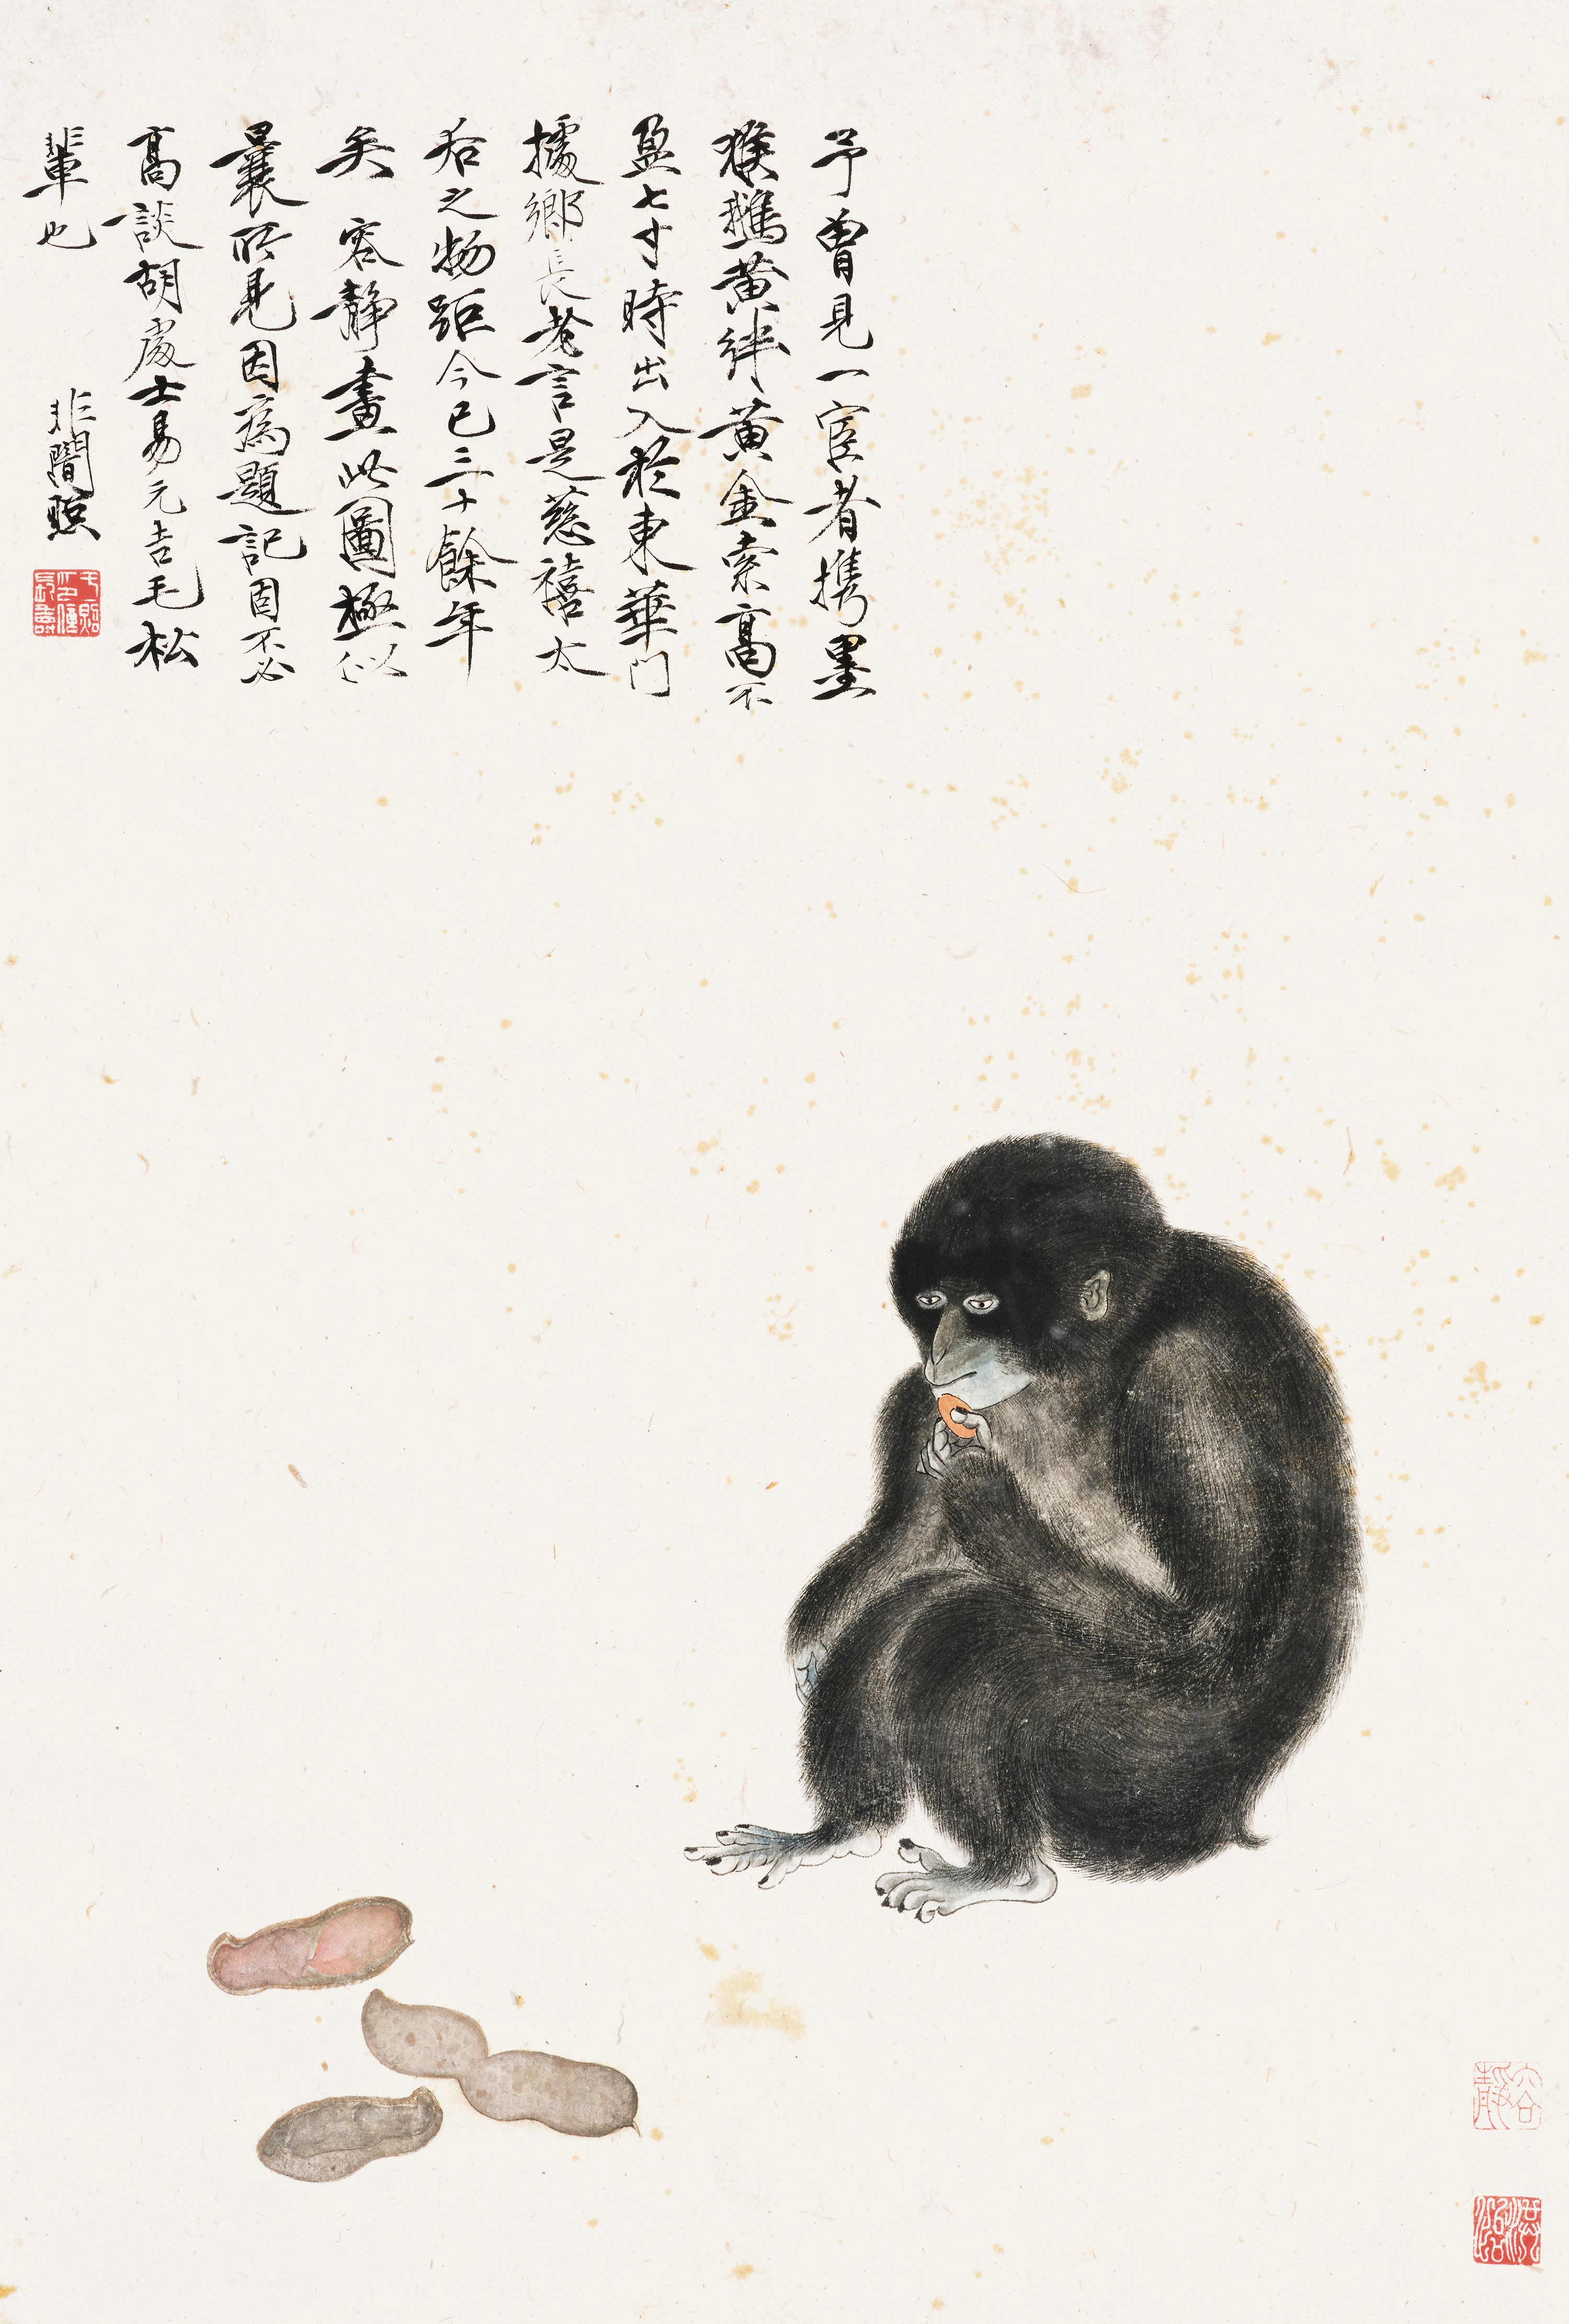 予曾見一宦者携墨
猴鵝黃絆黃金索高不
盈七寸時出入於東華門
據鄉長老言是慈禧太
后之物距今已三十餘年
矣 容靜畫此圖極似
曩所見因為題記固不必
高談胡處士易元吉毛松
輩也
非闇照
容靜